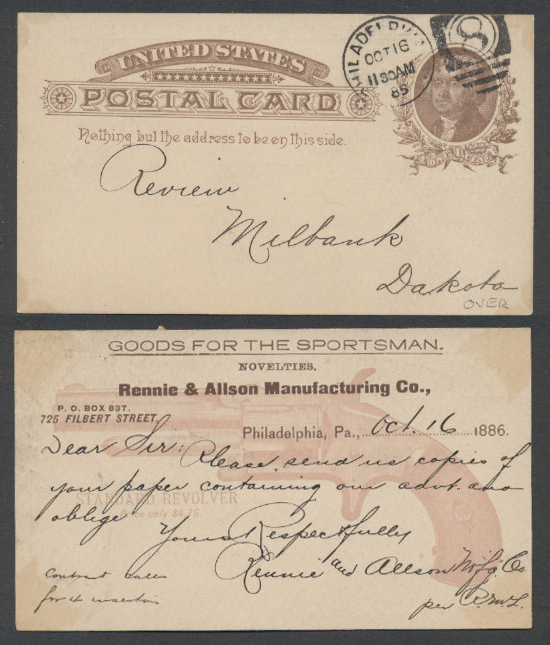 UNITED STATES
POSTAL CARD
Nothing but the address to be on this side.
PHILADELPHIA
OCT 16
11 30 AM
86
8
Review
Milbank
Dakota
OVER
GOODS FOR THE SPORTSMAN.
NOVELTIES.
Rennie & Allson Manufacturing Co.,
P. O. BOX 637.
725 FILBERT STREET
Philadelphia, Pa., Oct. 16 1886.
Dear Sir: Please send us copies of
your paper containing our advt. and
STANDARD REVOLVER
oblige
Price only $4.75.
Yours Respectfully
Rennie and Allson M'f'g. Co.
Contract calls
for 4 insertion
per